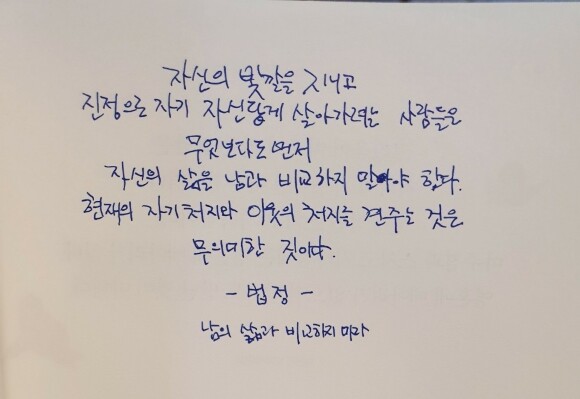 자신의 빛깔을 지니고
진정으로 자기 자신답게 살아가려는 사람들은
무엇보다도 먼저
자신의 삶을 남과 비교하지 말아야 한다.
현재의 자기 처지와 이웃의 처지를 견주는 것은
무의미한 짓이다.
- 법정 -
남의 삶과 비교하지 마라